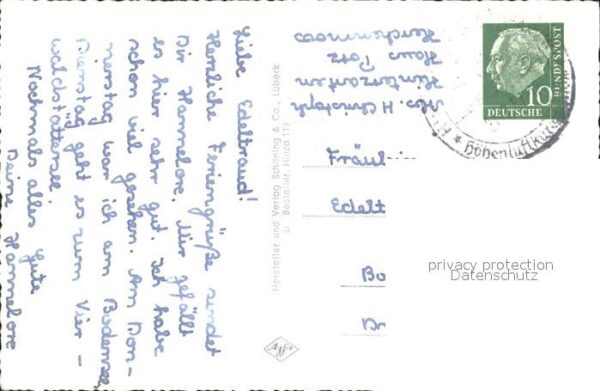 Liebe Edeltraud!
Herzliche Feriengrüße sendet
Dir Hannelore. Mir gefällt
es hier sehr gut. Ich habe
schon viel gesehen. Am Don-
nerstag war ich am Bodensee,
Dienstag geht es zum Vier-
waldstättersee.
Nochmals alles Gute
Deine Hannelore
Hersteller und Verlag Schöning & Co., Lübeck
Bestellnr. Hinza 117
Agfa
Abs. H. Christoph
Hinterzarten
Haus Totz
10
DEUTSCHE
BUNDESPOST
Höhenluftkurort
Fräul
Edelt
Bo
Br
privacy protection
Datenschutz